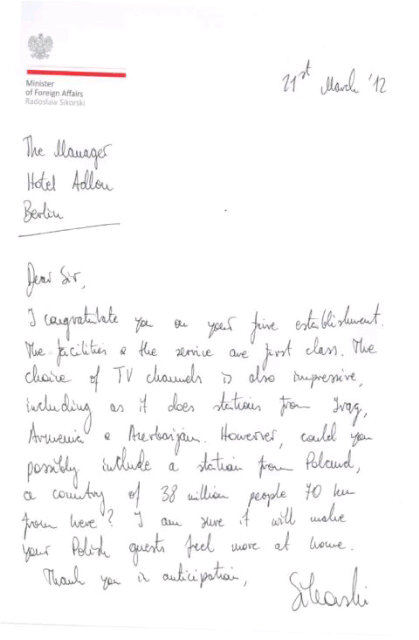 Minister
of Foreign Affairs
Radosław Sikorski
21st March '12
The Manager
Hotel Adlon
Berlin
Dear Sir,
I congratulate you on your fine establishment.
The facilities & the service are first class. The
choice of TV channels is also impressive,
including as it does stations from Iraq,
Armenia & Azerbaijan. However, could you
possibly include a station from Poland,
a country of 38 million people 70 km
from here? I am sure it will make
your Polish guests feel more at home.
Thank you in anticipation,
Sikorski